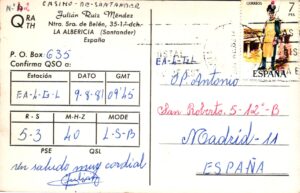 CASINO-DE-SANTANDER
Q RA TH
Julián Ruiz Méndez
Ntra. Sra. de Belén, 35-1.º-dch.
LA ALBERICIA (Santander)
España
P. O. Box 635
Confirma QSO a:
Estación DATO GMT
EA-1-GL 9-8-81 09'45
R-S M/HZ MODE
5-3 40 L-S-B
PSE QSL
un saludo muy cordial
7 PTA
ESPAÑA
Dº Antonio
San Roberto. 5-12º-B
Madrid-11
ESPAÑA